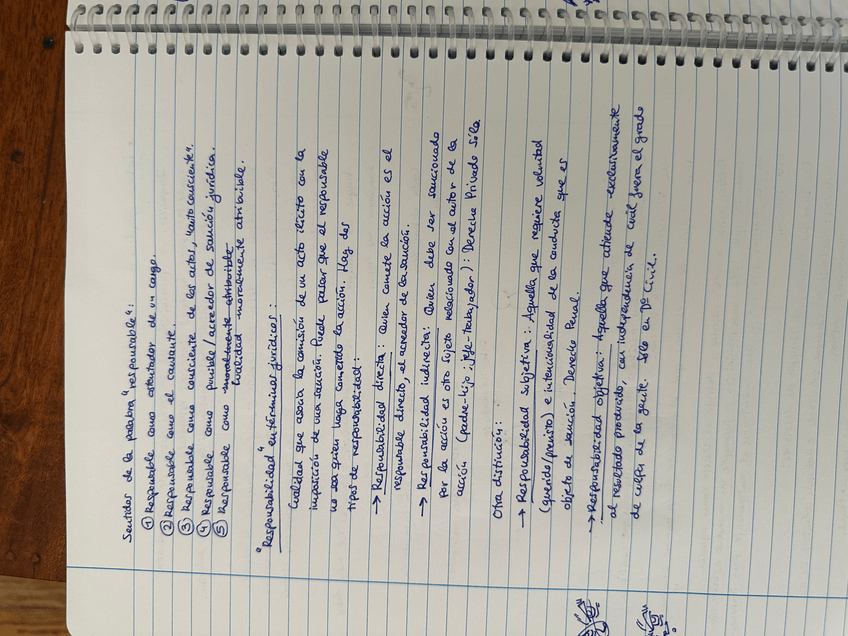 Sentidos de la palabra "responsable":
① Responsable como ostentador de un cargo.
② Responsable como el causante.
③ Responsable como consciente de los actos, "autoconsciente".
④ Responsable como punible/acreedor de sanción jurídica.
⑤ Responsable como moralmente atribuible
Cualidad moralmente atribuible.
"Responsabilidad" en términos jurídicos:
Cualidad que asocia la comisión de un acto ilícito con la
imposición de una sanción. Puede pasar que el responsable
no sea quien haya cometido la acción. Hay dos
tipos de responsabilidad:
→ Responsabilidad directa: quien comete la acción es el
responsable directo, el acreedor de la sanción.
→ Responsabilidad indirecta: Quien debe ser sancionado
por la acción es otro sujeto relacionado con el autor de la
acción (padre-hijo; jefe-trabajador): Derecho Privado sólo
Otra distinción:
→ Responsabilidad subjetiva: Aquella que requiere voluntad
(querido/previsto) e intencionalidad de la conducta que es
objeto de sanción. Derecho Penal.
→ Responsabilidad objetiva: Aquella que atiende exclusivamente
al resultado producido, con independencia de cuál fuera el grado
de culpa de la gente. Sólo en Dº Civil.